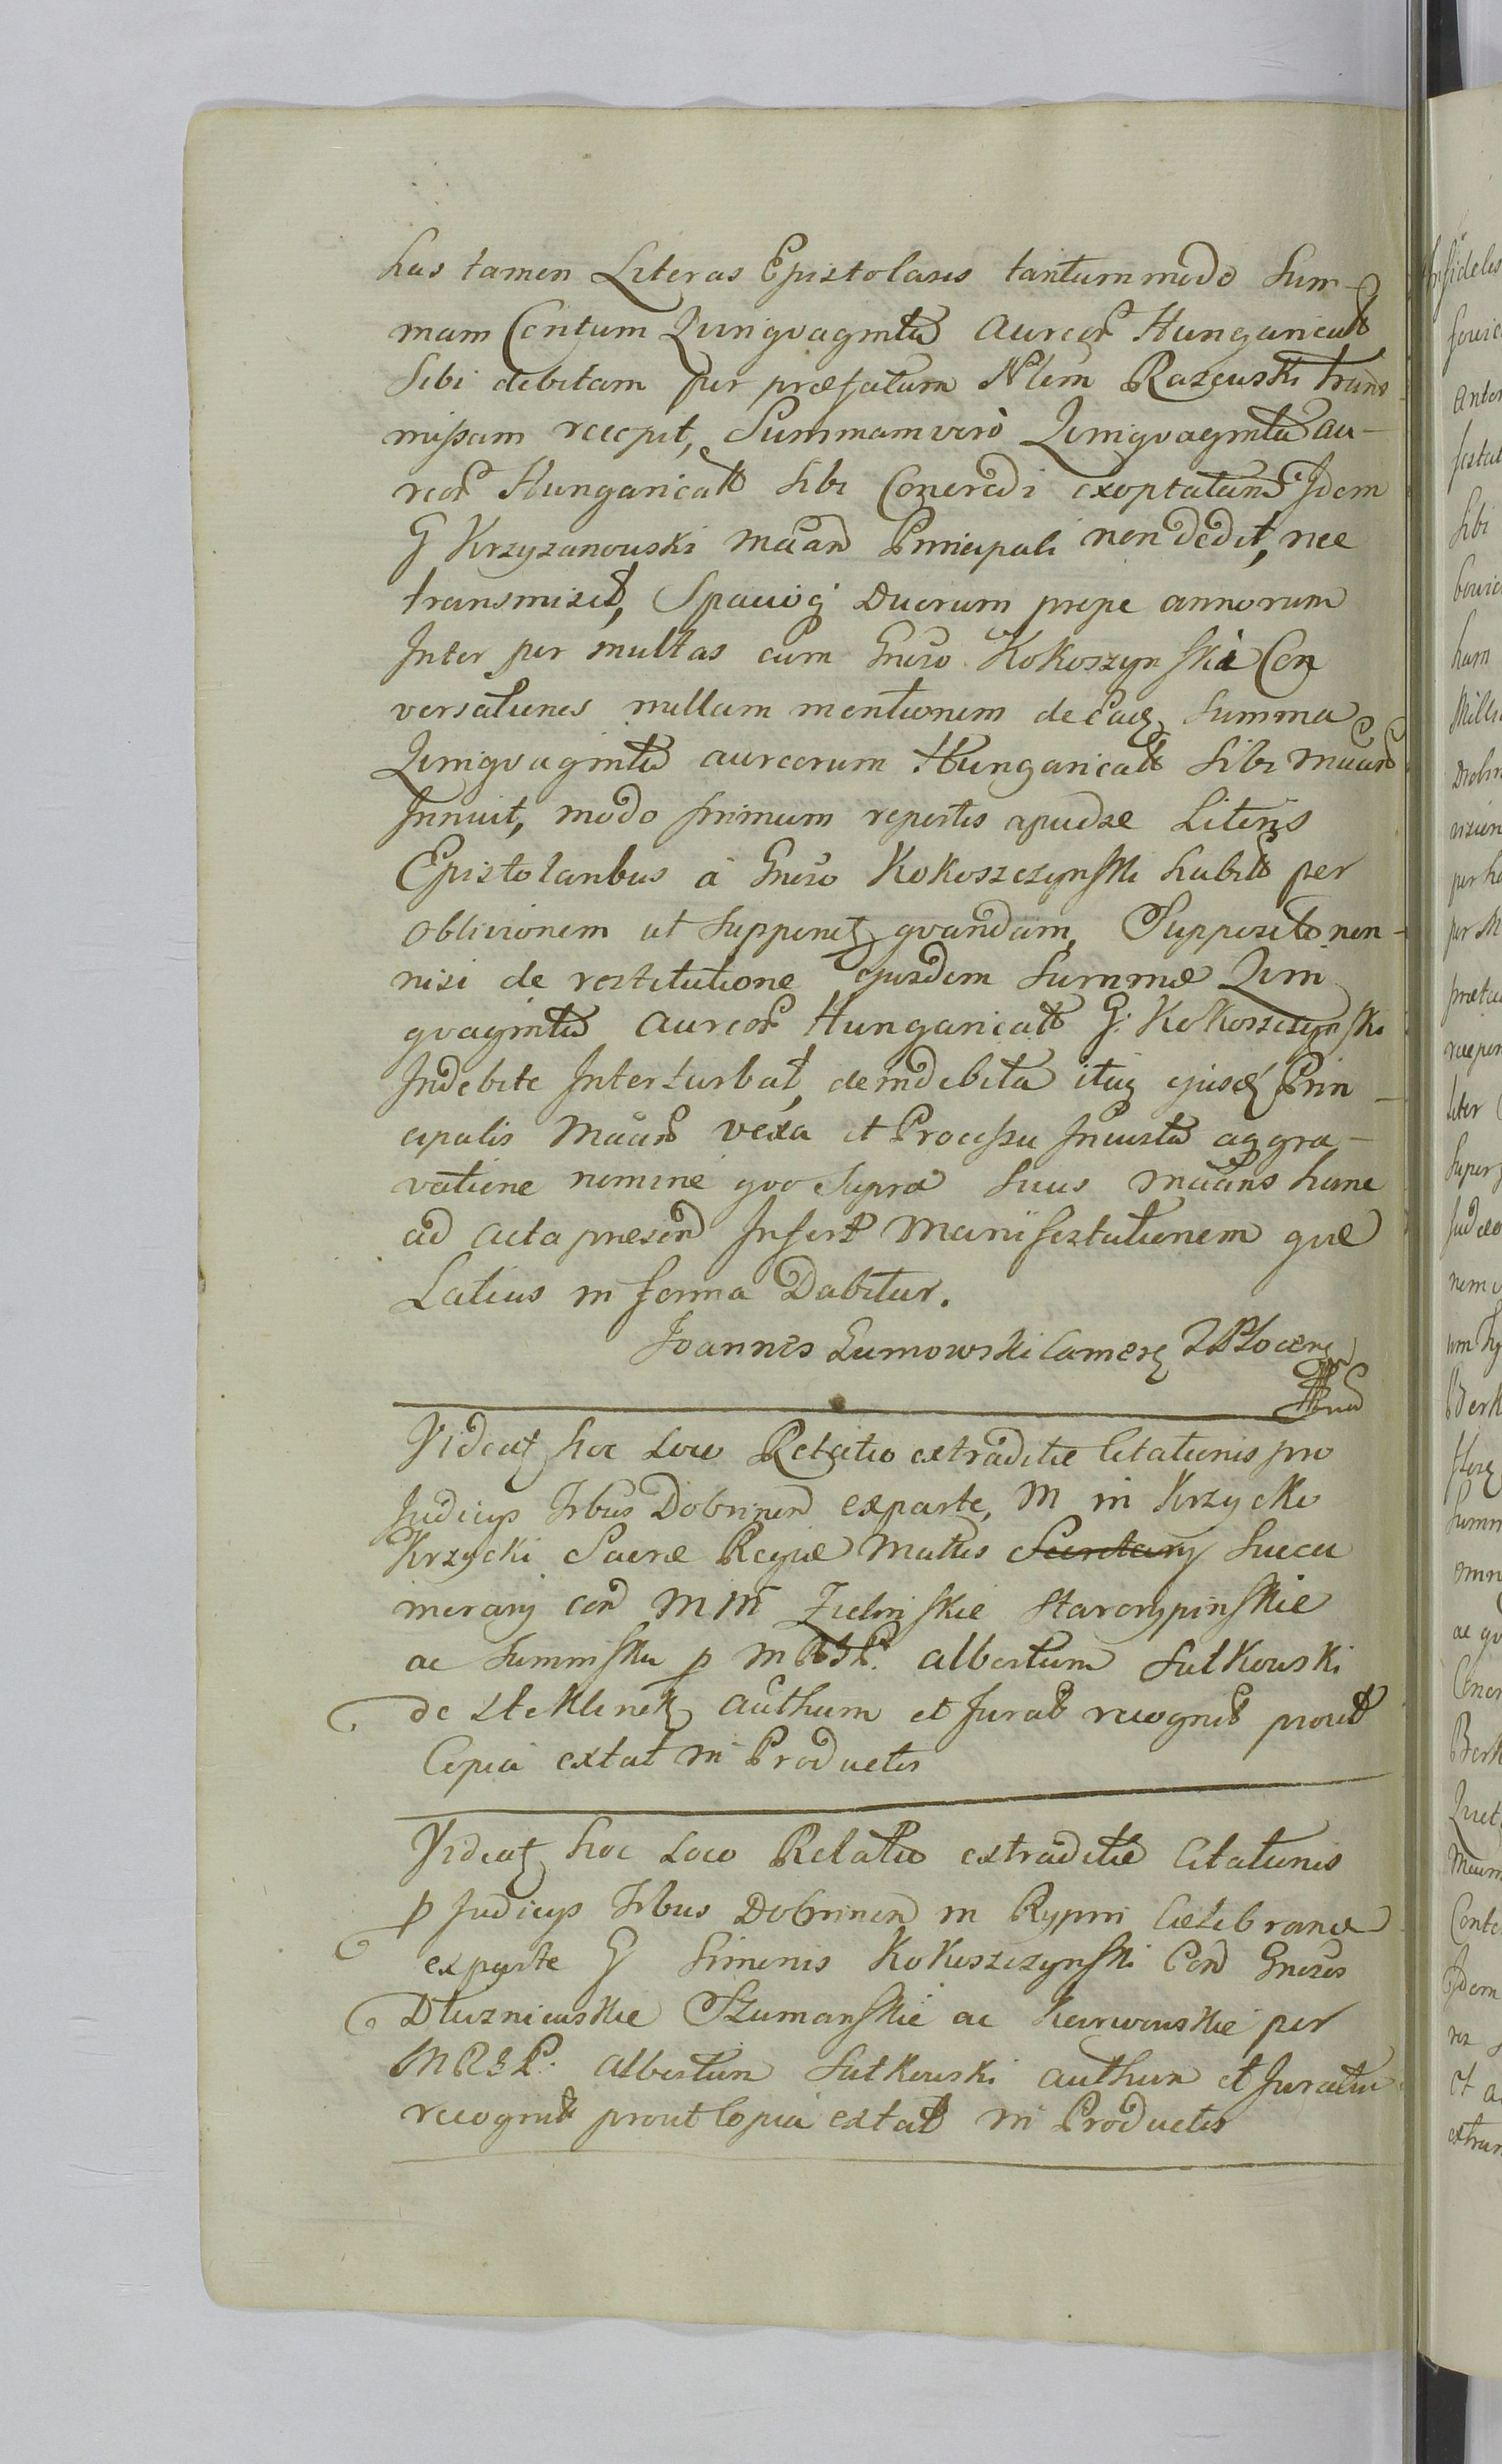 has tamen Literas Epistolares tantummodo Sum-
mam Centum Qvinqvaginta Aureor Hungaricall
Sibi debitam per præfatum Nlem Razewski trans-
missam recepit, Summam verò Qvinqvaginta au-
reor Hungaricall Sibi Concredi exoptatam Idem
G Krzyzanowski Mãan Principali non dedit, nec
transmisit, Spacioq Duorum prope annorum
Inter per multas cum Gneso Kokoszynski Con
versationes nullam mentionem de eadę Summa
Qvinqvaginta aureorum Hungaricall Sibi Maãn
Innuit, modo primum repertis apud se Literis
Epistolaribus à Gneso Kokoszczynski habitis per
oblivionem ut Supponit qvandam, Supposito non-
nisi de restitutione ejusdem Summæ Qvin
qvaginta Aureor Hungaricall G. Kokoszczynski
Indebite Interturbat, de indebita itaq ejusd Prin-
cipalis Maãn vexa et Processu Iniusta aggra-
vatione nomine qvo Supra Suus Maãns hanc
ad acta præsen Infert Manifestationem qvæ
Latius in forma Dabitur.
Joannes Gumowski Camerę Plocenę

Videatę hoc Loco Relatio extraditæ Citationis pro
Judicys Trbus Dobrinen ex parte, M in Krzycko
Krzycki Sacræ Regiæ Mattis Secretary Succa
merary con M M Zielinskie Starorypinskie
ac Suminski p M R G P. Albertum Sutkowski
de Steklinek Authum et Jurat recognit prout
Copia extat in Productis

Videatę hoc Loco Relatio extraditæ Citationis
p Judicys Trbus Dobrinen in Rypin Celebrand
ex parte G Simonis Kokoszczynski Con Gnesos
Dluzniewskie Szumanskie ac Karwowskie per
M R G P. Albertum Sutkowski authum et Juratu
recognit prout Copia extat in Productis